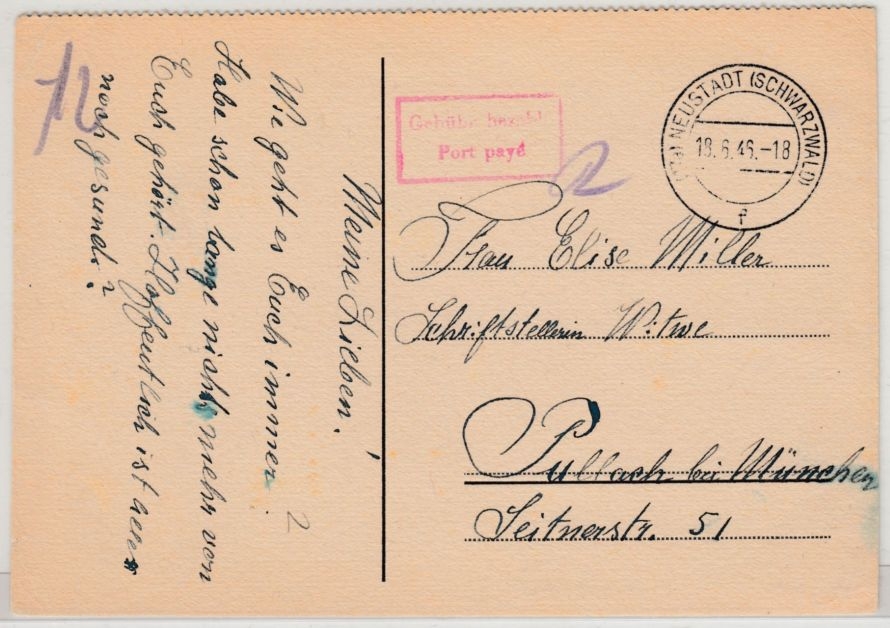 Meine Lieben!
Wie geht es Euch immer?
Habe schon lange nichts mehr von
Euch gehört. Hoffentlich ist alles
noch gesund?
12
Gebühr bezahlt
Port payé
NEUSTADT (SCHWARZWALD)
18.6.46.-18
f
Frau Elise Miller
Schriftstellerin Witwe
Pullach bei München
Seitnerstr. 51